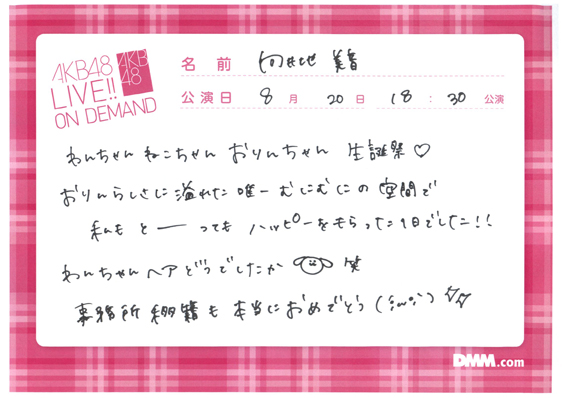 AKB48
LIVE!!
ON DEMAND
AKB
48
名前 向井地 美音
公演日 8月 20日 18:30 公演
わんちゃん ねこちゃん おりんちゃん 生誕祭♡
おりんらしさに溢れた唯一むにむにの空間で
私もと——っても ハッピーをもらった1日でした!!
わんちゃんヘアどうでしたか 笑
事務所 移籍も 本当におめでとう
DMM.com